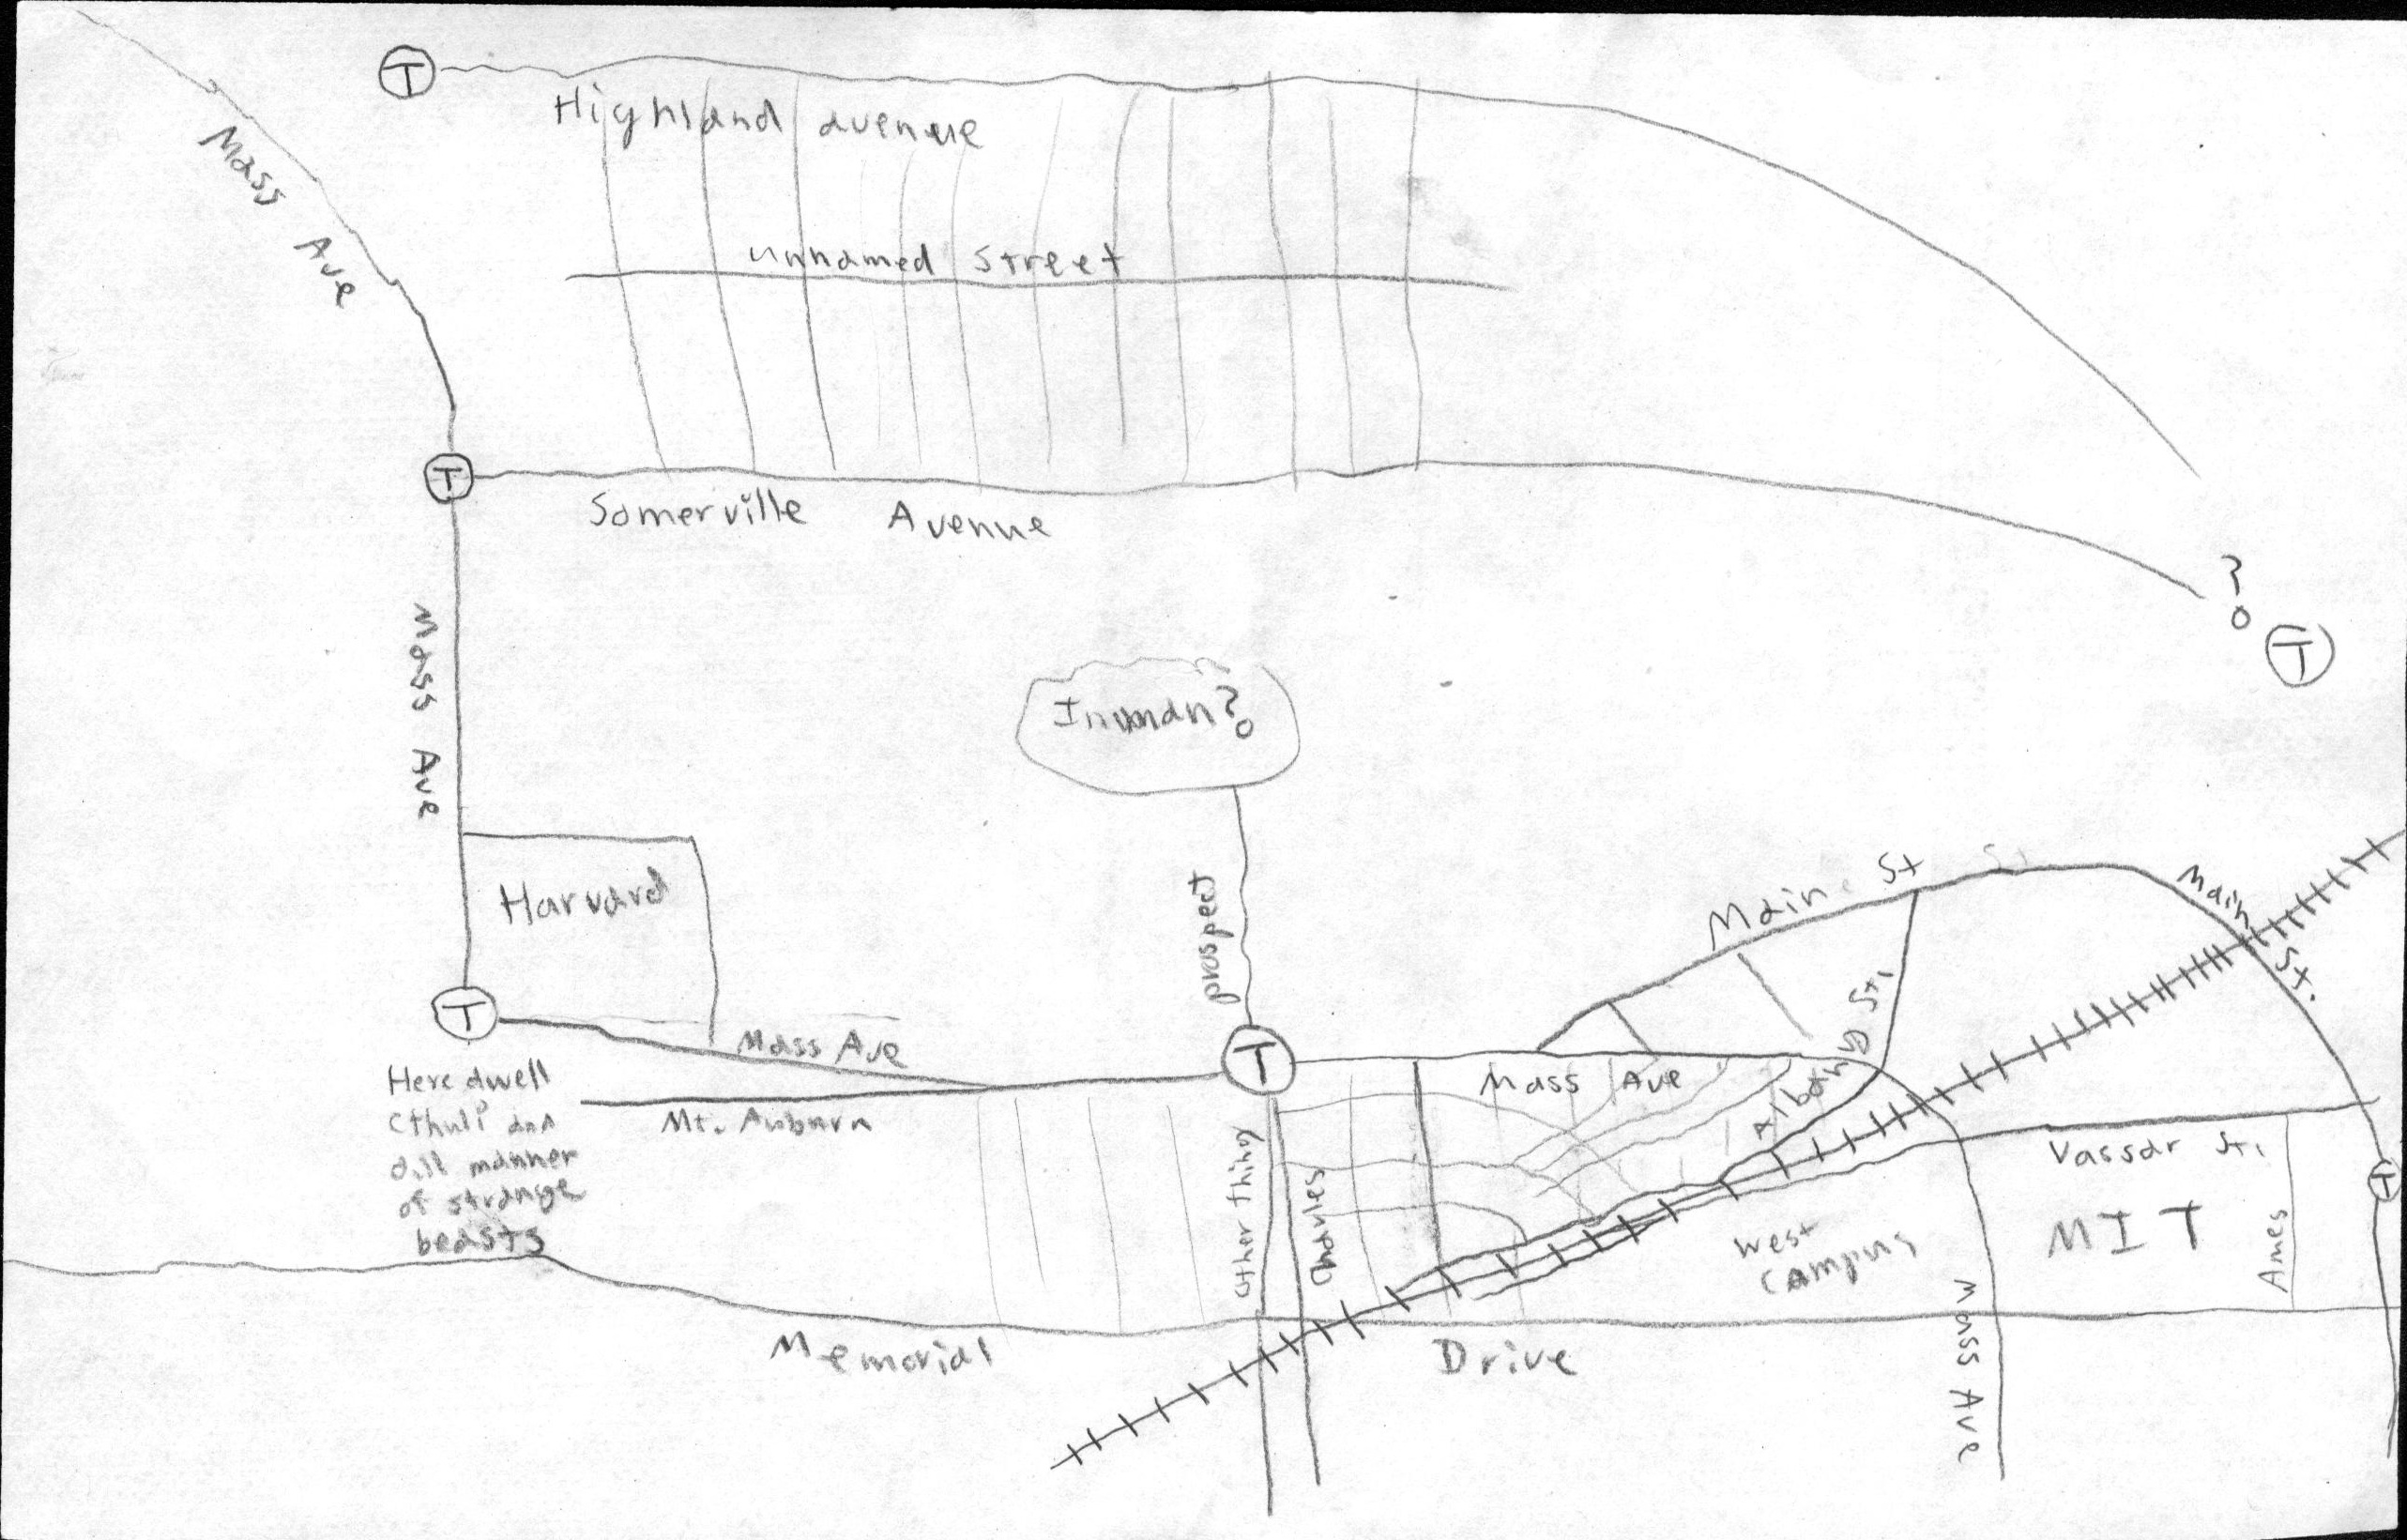 T
Highland avenue
Mass Ave
unnamed street
T
Somerville Avenue
?
T
Mass Ave
Inman?
Harvard
prospect
Main St St
Main St.
T
Mass Ave
T
Mass Ave
Albany St.
Here dwell
Cthuli and
all manner
of strange
beasts
Mt. Auburn
other thing
Charles
Vassar St.
T
West
Campus
MIT
Ames
Memorial Drive
Mass Ave